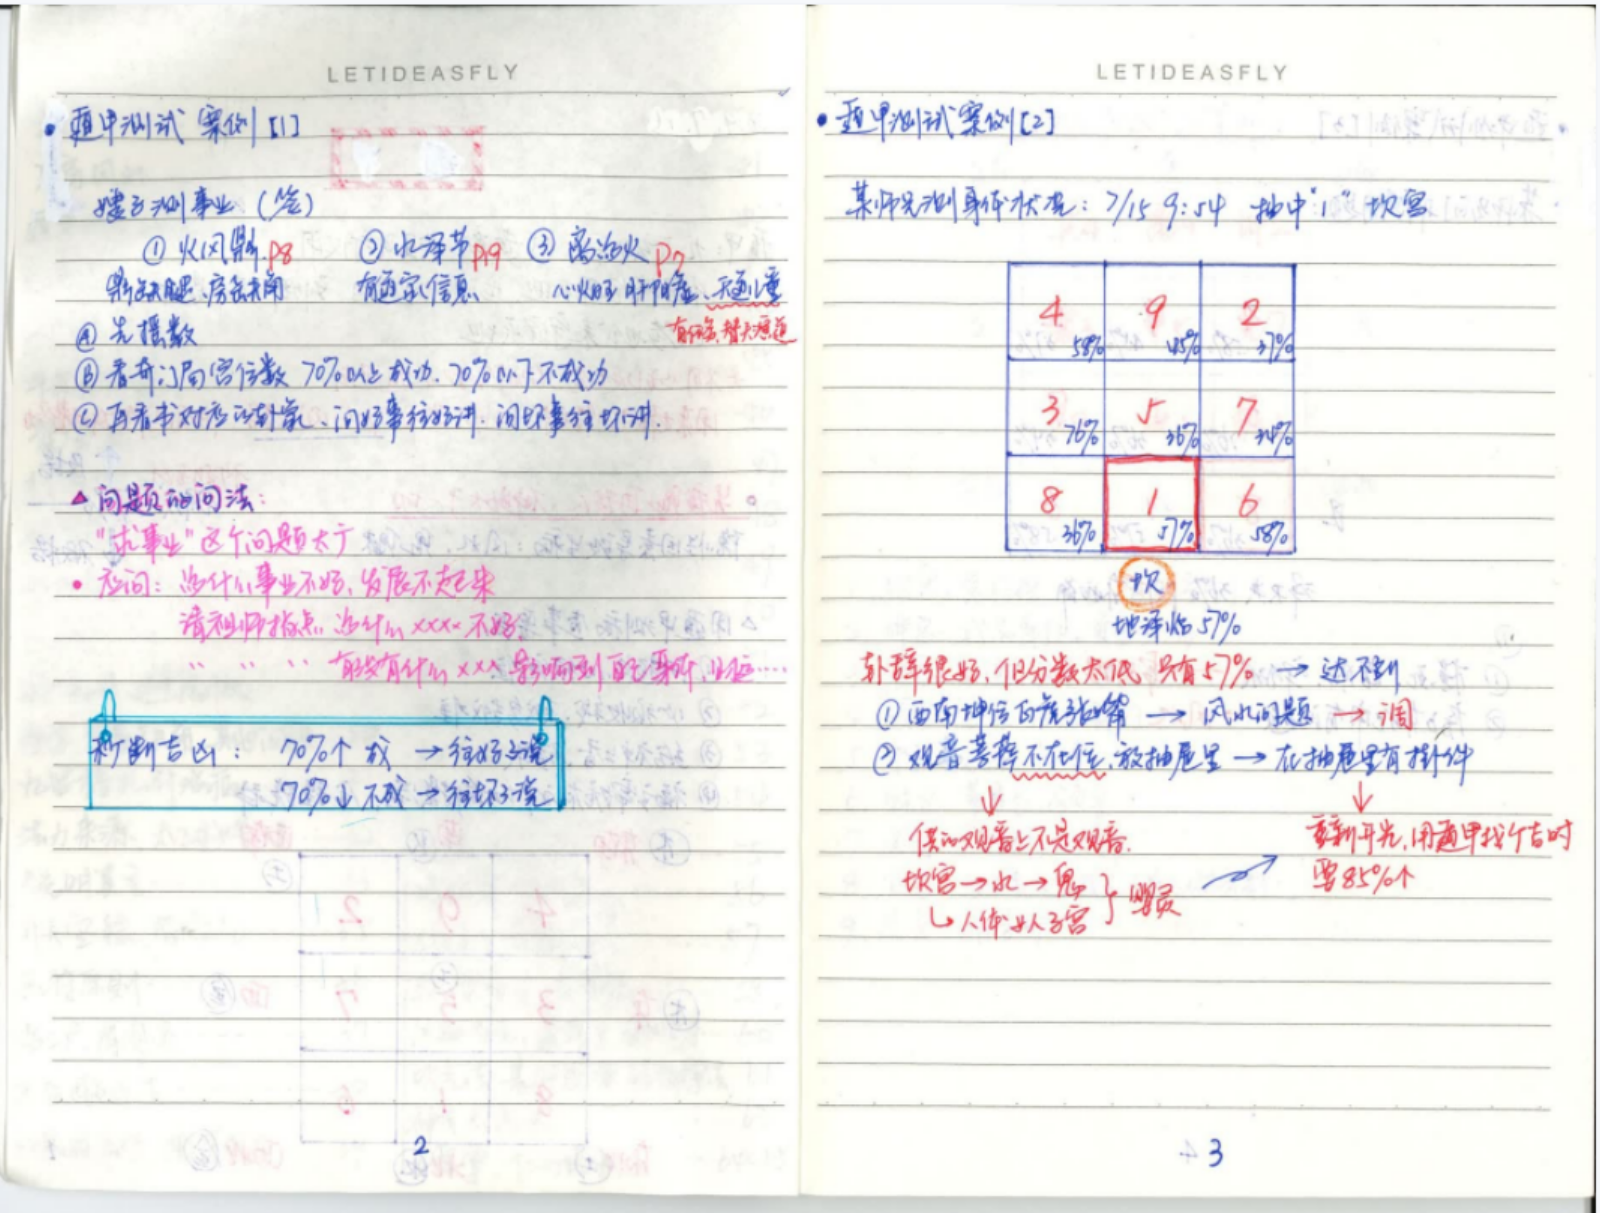 LETIDEASFLY
• 遁甲测试 案例[1]
嫂子测事业(签)
① 火风鼎 P8 ② 水泽节 P19 ③ 离为火 P7
鼎缺腿、房子缺角 有道家信息 心火旺 肝阳虚、天通儿童
有任务、替天
Ⓐ 先摇数
Ⓑ 看奇门局宫位数 70%以上成功、70%以下不成功
Ⓒ 再看书对应的卦象、问好事往好讲、问坏事往坏讲.
△ 问题的问法:
"求事业"这个问题太广
• 应问: 为什么事业不好,发展不起来
请祖师指点 为什么 xxxx 不好.
〃 〃 〃 有没有什么 xxx 影响到自己身体,
秒断吉凶: 70%↑ 成 → 往好了说
70%↓ 不成 → 往坏了说
2
LETIDEASFLY
• 遁甲测试案例[2]
某师兄测身体状况: 7/15 9:54 抽中"1" 坎宫
4 58% 9 45% 2 37%
3 76% 5 36% 7 34%
8 36% 1 57% 6 58%
坎
地泽临 57%
卦辞很好,但分数太低 只有57% → 达不到
① 西南坤位白虎张嘴 → 风水问题 → 调
② 观音菩萨不在位,放抽屉里 → 在抽屉里有掛件
↓ ↓
供的观音上不是观音. 重新开光,用遁甲找个吉时
坎宫→水→鬼 } 婴灵 要85%↑
↳人体女人子宫
3